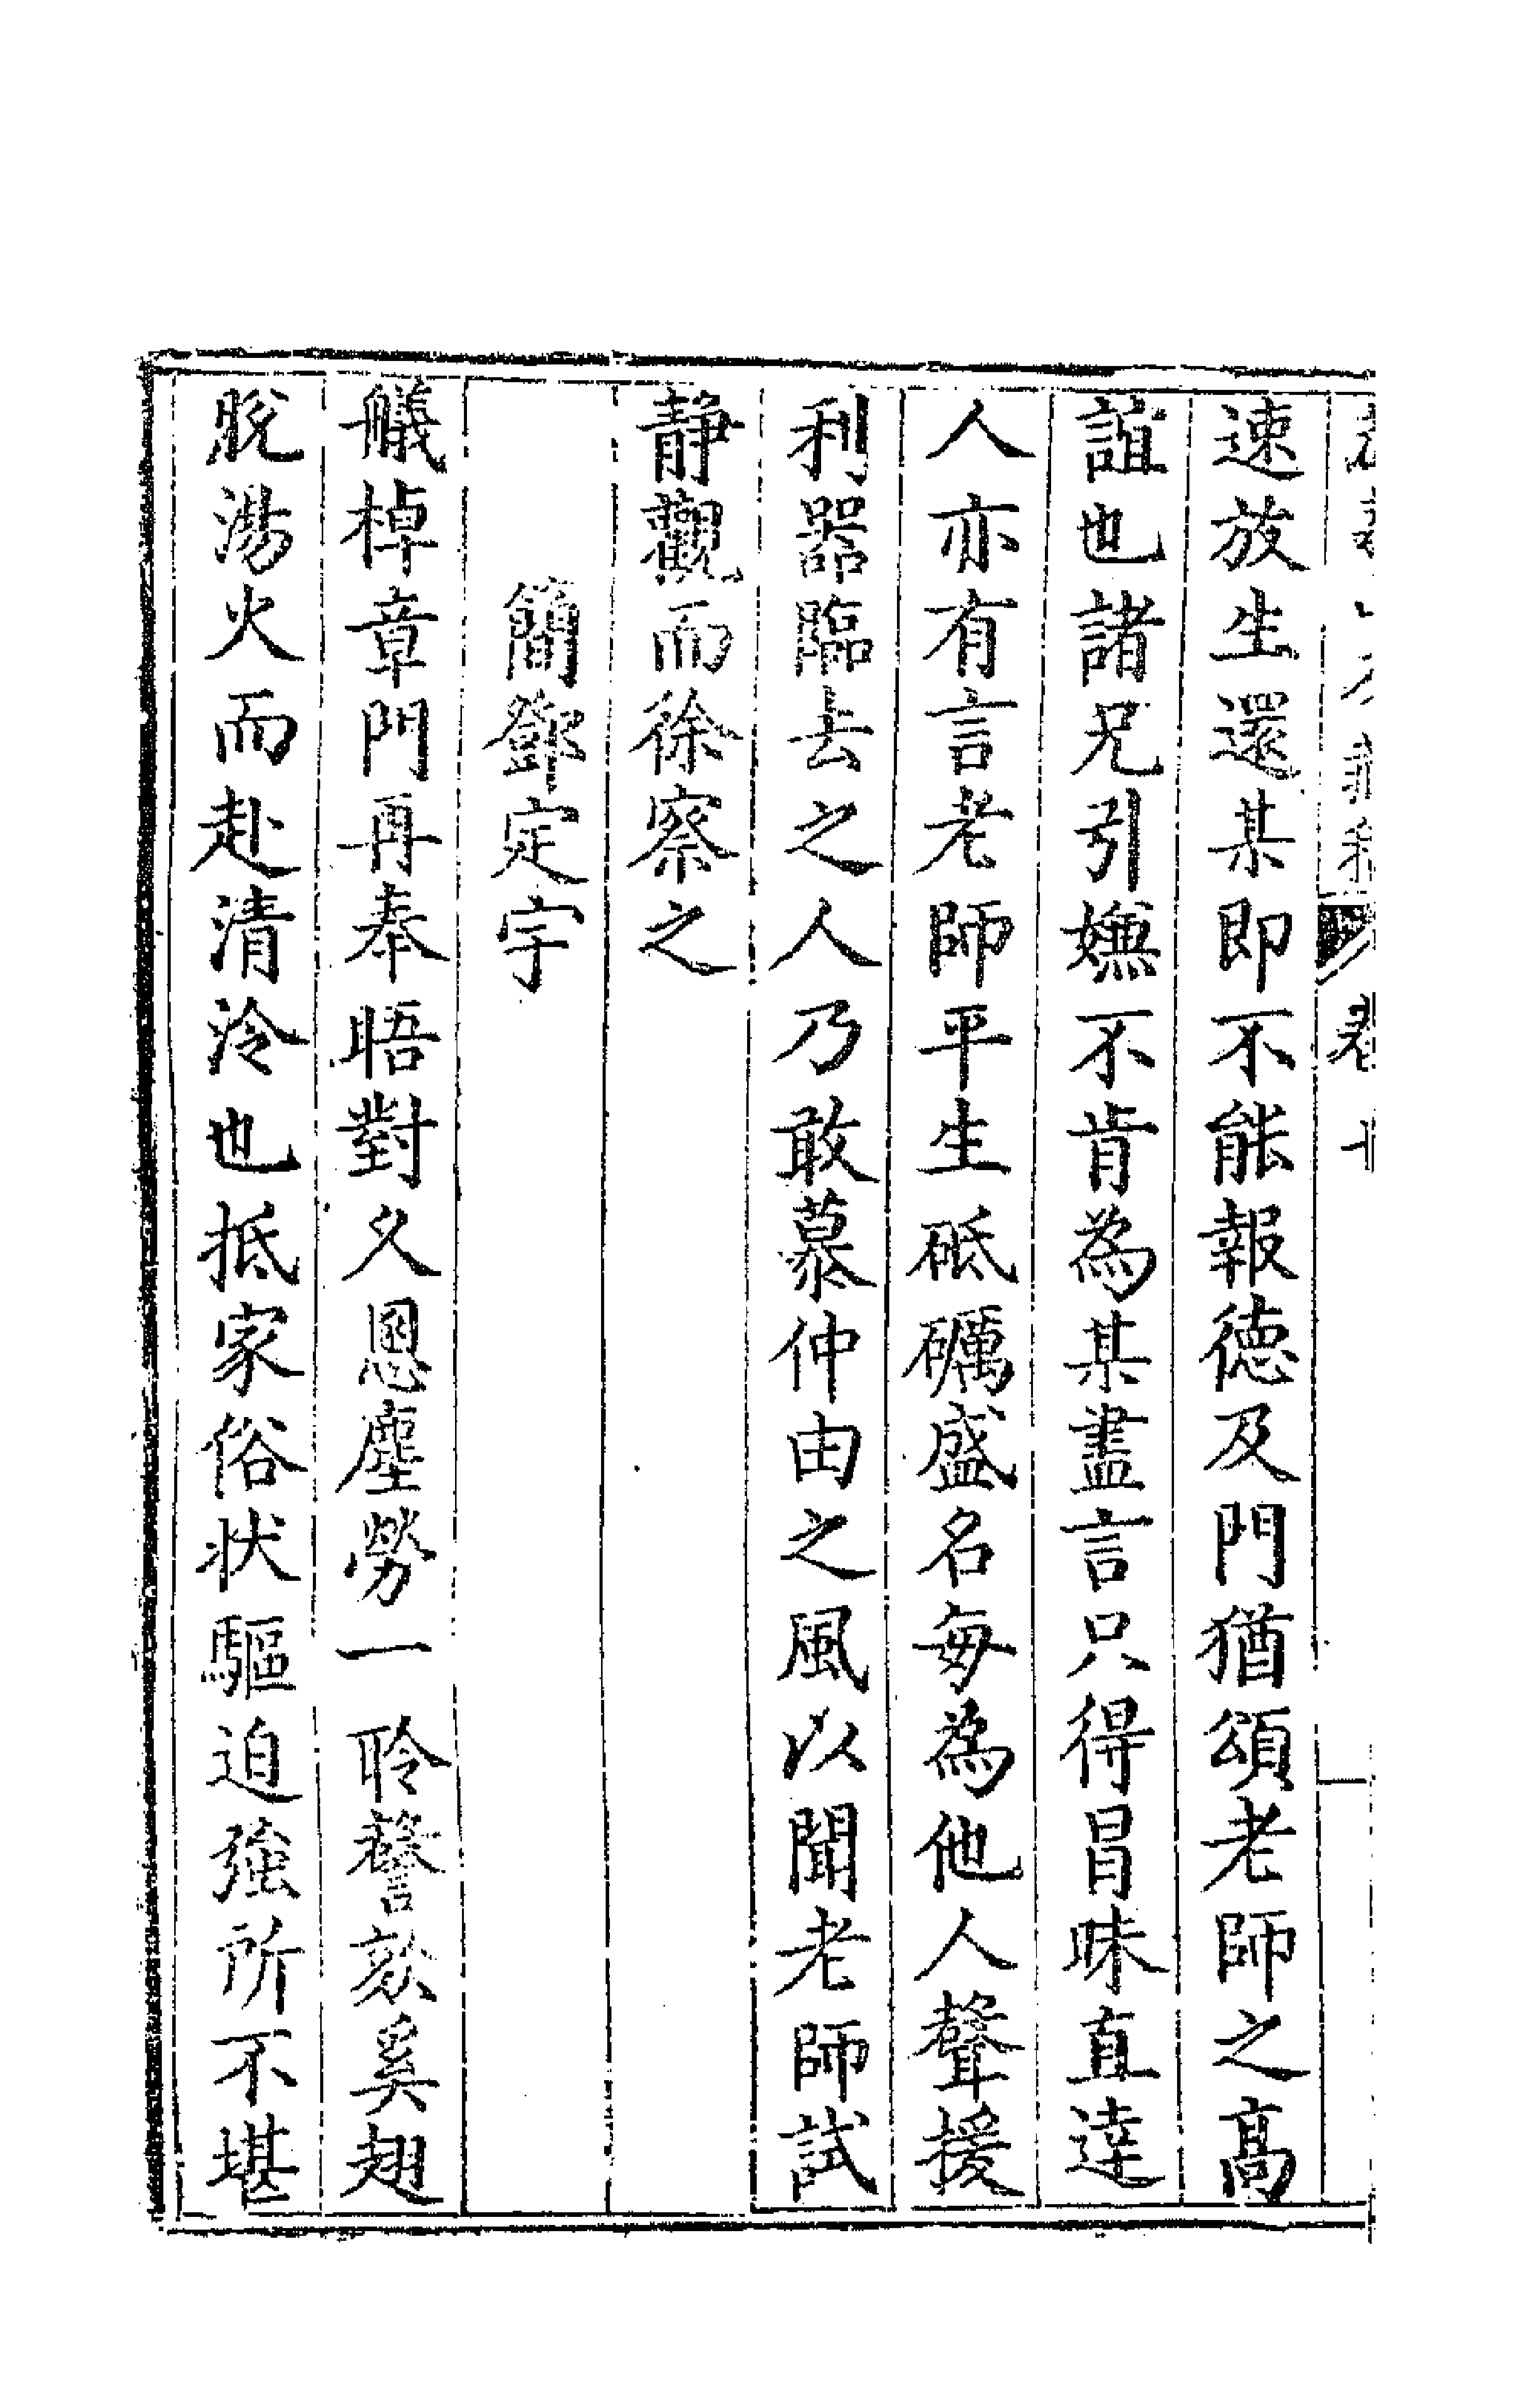 速放生還某即不能報德及門猶頌老師之高
誼也諸兄引嫌不肯為某盡言只得冒昧直達
人亦有言老師平生砥礪盛名每為他人聲援
利器臨去之人乃敢慕仲由之風以聞老師試
靜觀而徐察之
簡鄧定宇
艤棹章門再奉晤對久恩塵勞一聆謦欬奚翅
脫湯火而赴清泠也抵家俗狀驅迫強所不堪
卷十